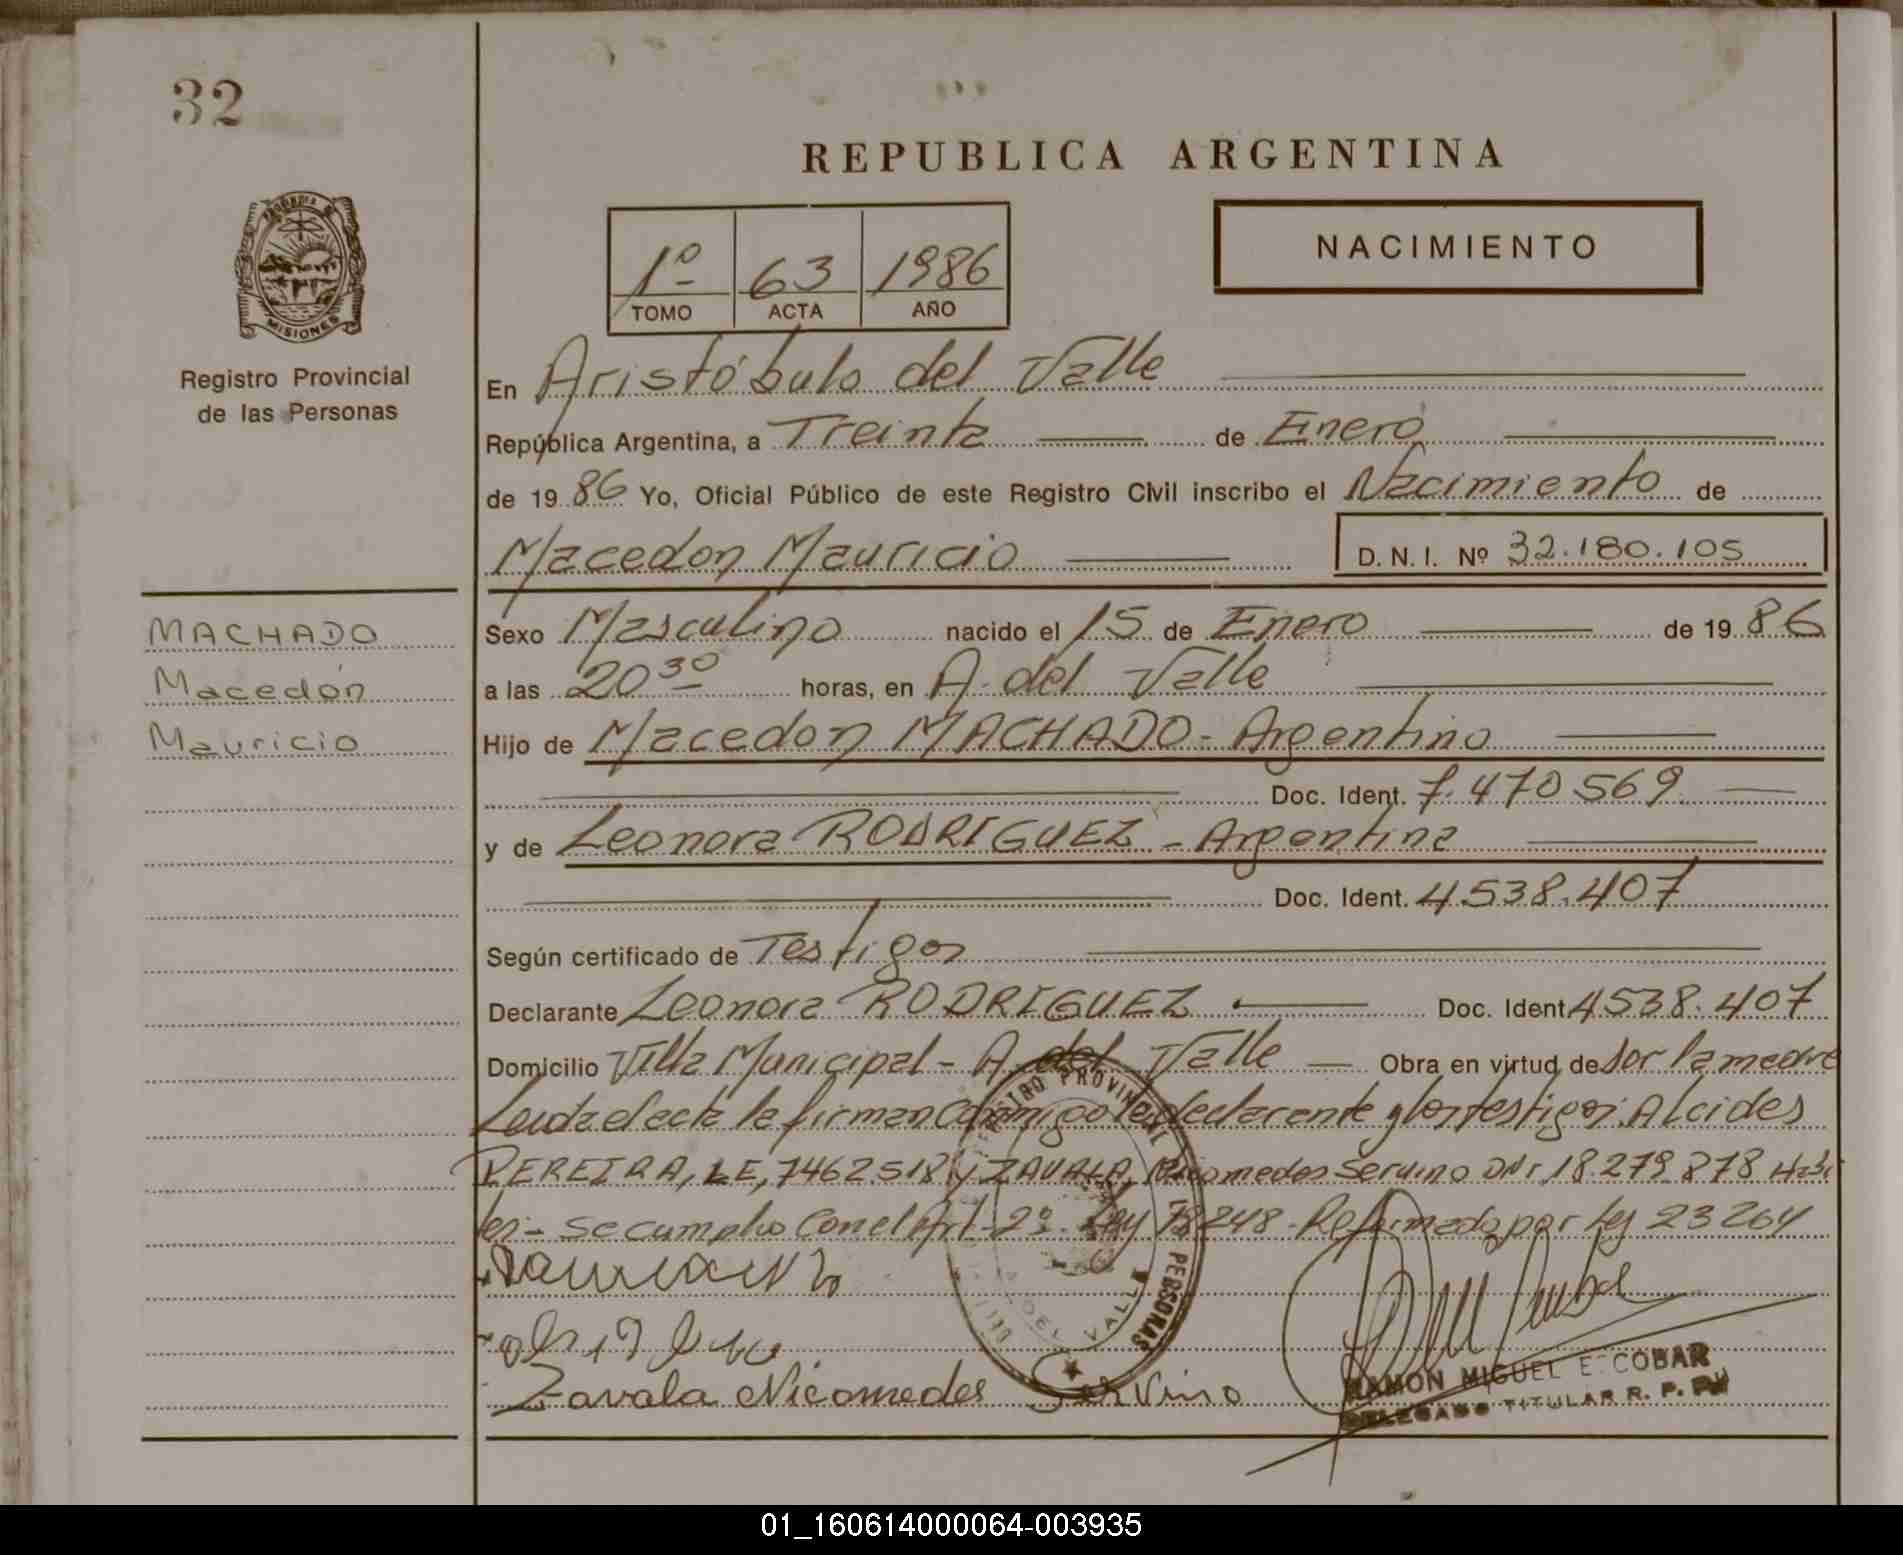 32
REPUBLICA ARGENTINA
PROVINCIA DE
MISIONES
Registro Provincial
de las Personas
1º
TOMO
63
ACTA
1986
AÑO
NACIMIENTO
En Aristóbulo del Valle
República Argentina, a Treinta de Enero
de 1986 Yo, Oficial Público de este Registro Civil inscribo el Nacimiento de
Macedon Mauricio
D. N. I. Nº 32.180.105
MACHADO
Macedón
Mauricio
Sexo Masculino nacido el 15 de Enero de 1986
a las 20 30 horas, en A. del Valle
Hijo de Macedon MACHADO - Argentino
Doc. Ident. 7.470.569
y de Leonora RODRIGUEZ - Argentina
Doc. Ident. 4.538.407
Según certificado de Testigos
Declarante Leonora RODRIGUEZ Doc. Ident. 4.538.407
Domicilio Villa Municipal - A. del Valle Obra en virtud de ser la madre
Leida el acta la firman Conmigo la declarante y los testigos: Alcides
PEREIRA, LE, 7462518 y ZAVALA, Nicomedes Servino DNI 18.279.878 Habi
les - Se cumplio Con el Art- 2º Ley 18248 - Reformado por ley 23264
Zavala Nicomedes Servino
REGISTRO PROVINCIAL DE LAS PERSONAS
A. DEL VALLE
RAMON MIGUEL ESCOBAR
DELEGADO TITULAR R. P. P.
01_160614000064-003935